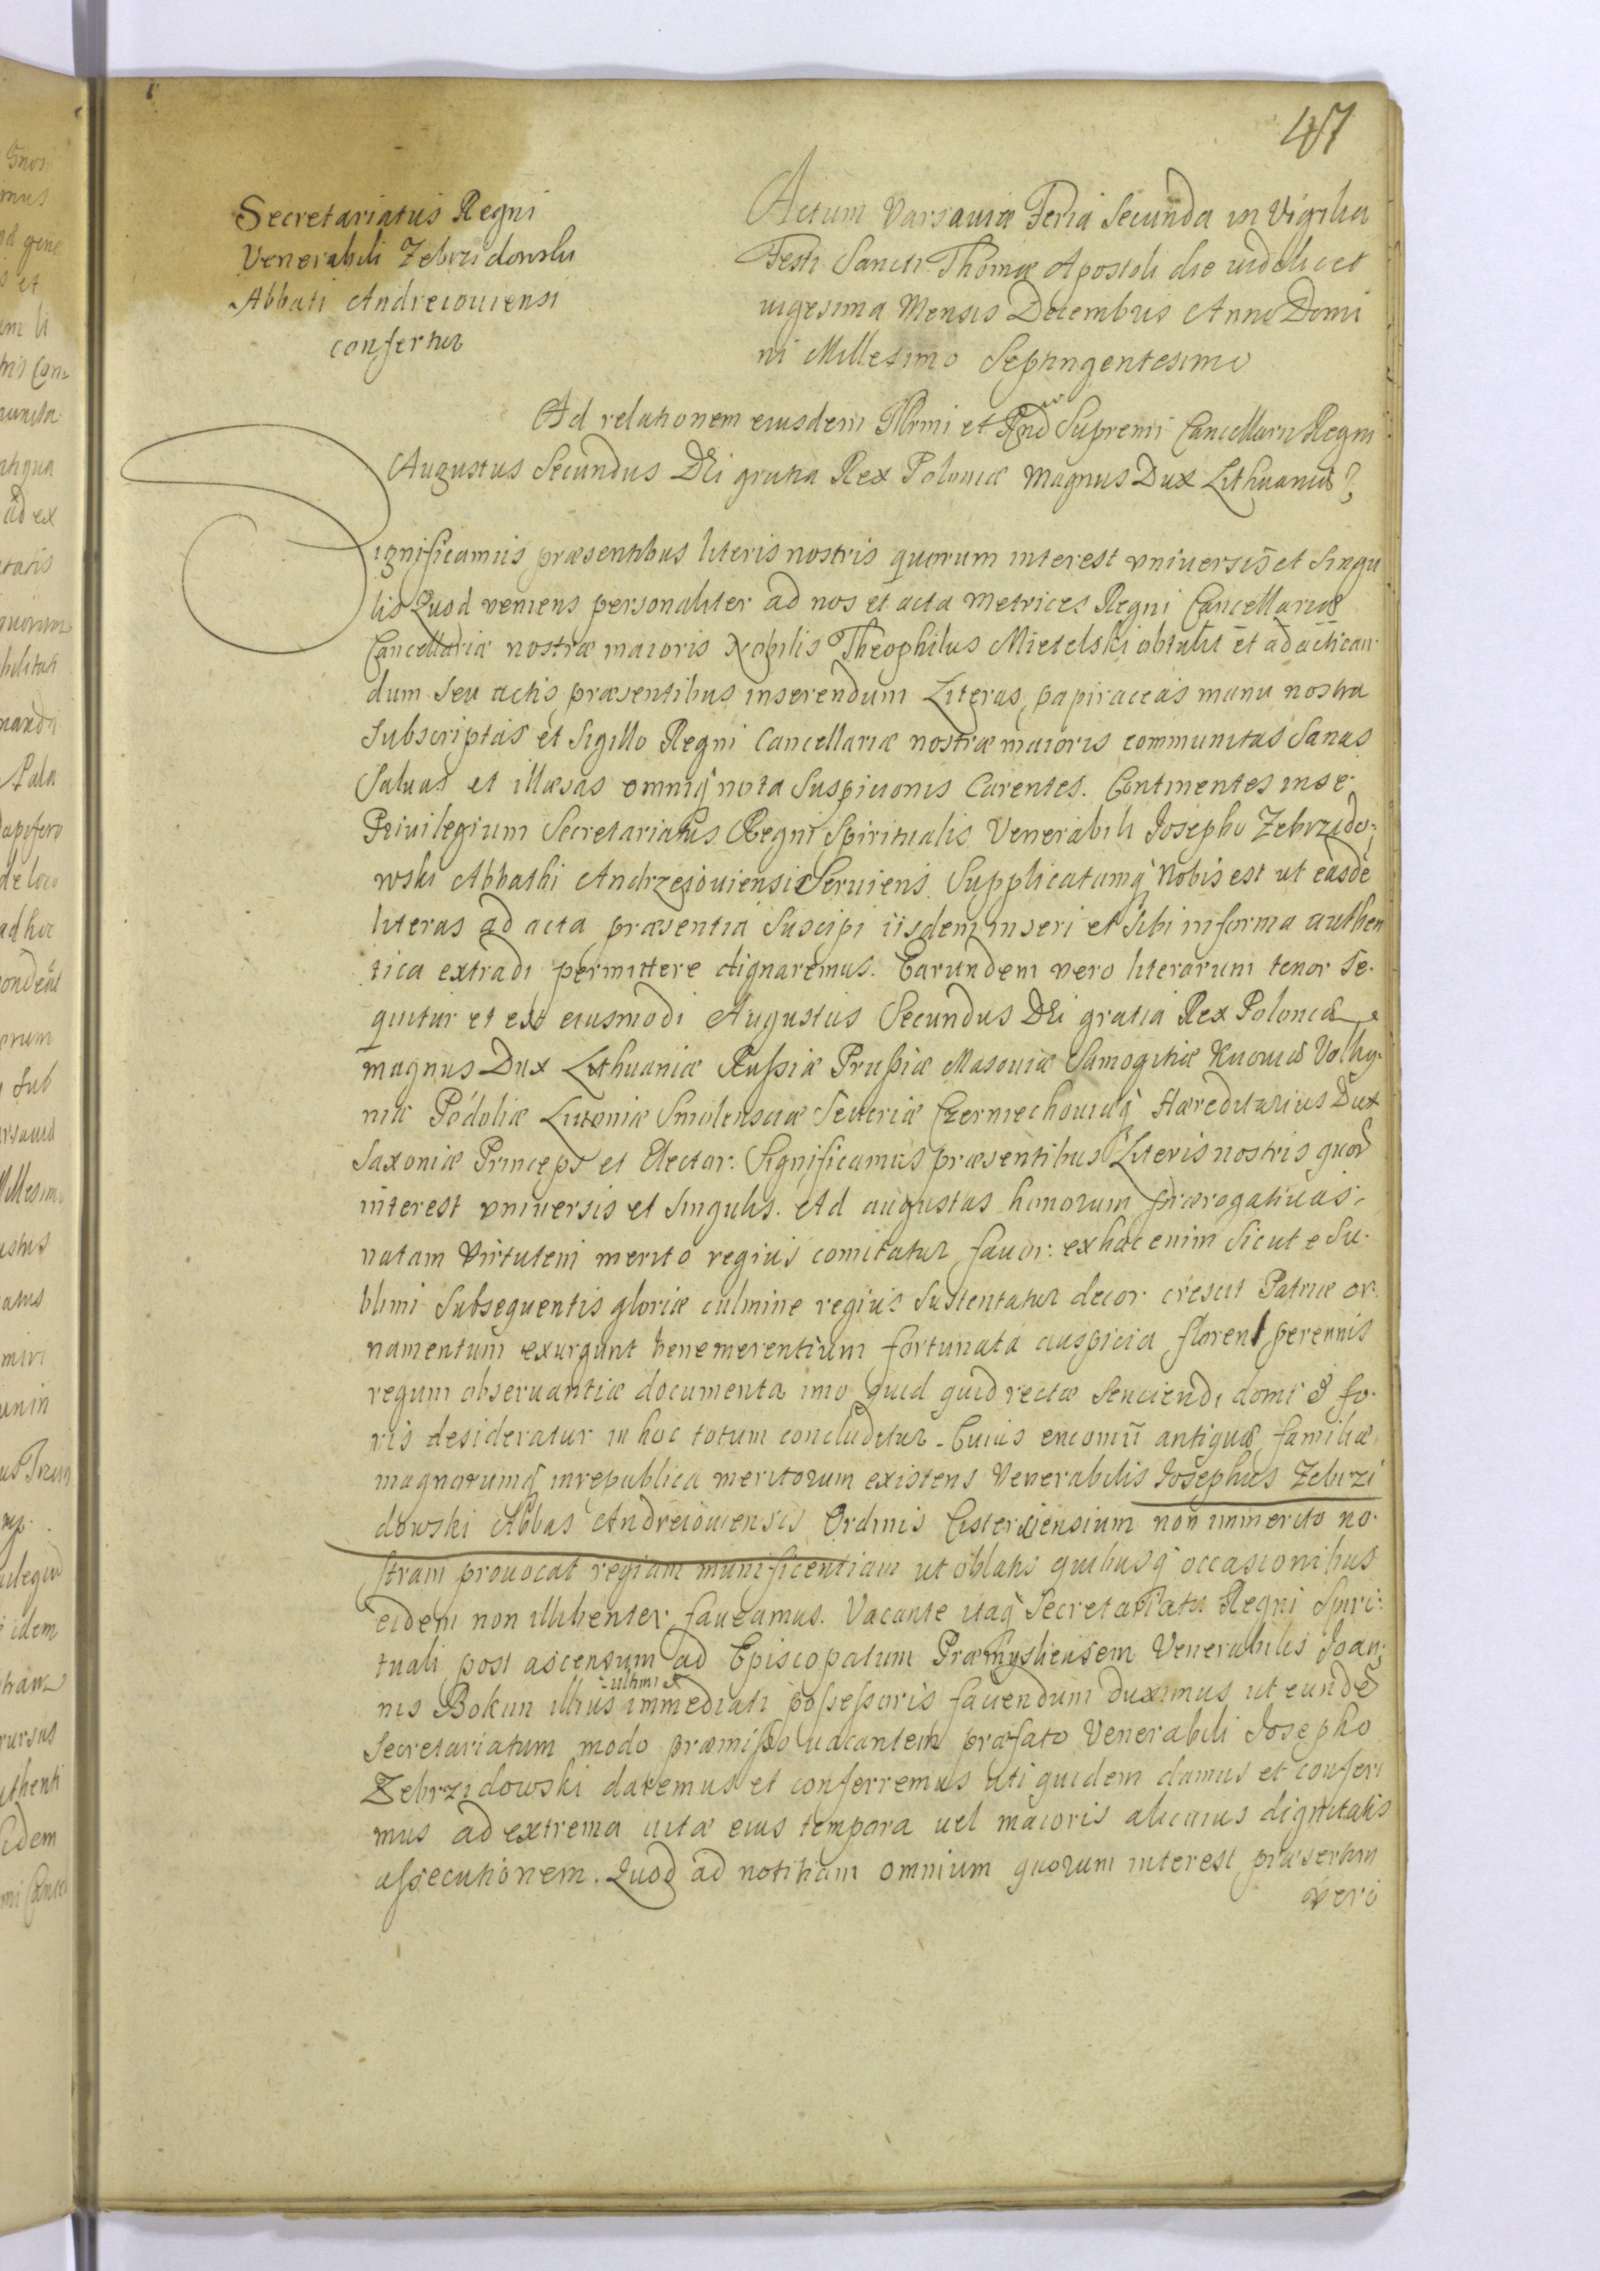 47
Secretariatus Regni
Venerabili Zebrzidowski
Abbati Andreiouiensi
confertur
Actum Varsauiæ Feria Secunda in Vigilia
Festi Sancti Thomæ Apostoli die uidelicet
uigesima Mensis Decembris Anno Domi
ni Millesimo Septingentesimo
Ad relationem eiusdem Illrmi et Rnd Supremi Cancellarii Regni
Augustus Secundus DEi gratia Rex Poloniæ Magnus Dux Lithuaniæ
Significamus præsentibus literis nostris quorum interest vniuersis et singu
lis Quod veniens personaliter ad nos et acta Metrices Regni Cancellariæ
Cancellariæ nostræ maioris Nobilis Theophilus Mietelski obtulit et ad actican
dum seu actis præsentibus inserendum Literas papiraceas manu nostra
Subscriptas et Sigillo Regni Cancellariæ nostræ maioris communitas Sanas
Saluas et illæsas omniq nota Suspicionis Carentes. Continentes in se
Priuilegium Secretariatus Regni Spiritualis Venerabili Josepho Zebrzido
wski Abbathi Andrzejouiensi Seruiens. Supplicatumq Nobis est ut easdē
literas ad acta præsentia Suscipi iisdem inseri et sibi in forma authen
tica extradi permittere dignaremus. Earundem vero literarum tenor se
quitur et est eiusmodi Augustus Secundus DEi gratia Rex Poloniæ
magnus Dux Lithuaniæ Russiæ Prussiæ Masouiæ Samogitiæ Kiiouiæ Volhy
niæ Podoliæ Liuoniæ Smolensciæ Seueriæ Czerniechouiæq Hæreditarius Dux
Saxoniæ Princeps et Elector. Significamus præsentibus Literis nostris quor
interest vniuersis et singulis. Ad augustas honorum prærogatiuas
natam virtutem merito regius comitatur fauor: ex hac enim sicut e su
blimi subsequentis gloriæ culmine regius sustentatur decor crescit Patriæ or
namentum exurgunt bene merentium fortunata auspicia florent perennis
regum obseruantiæ documenta imo quid quid rectæ senciendi domi & fo
ris desideratur in hoc totum concluditur. Cuius encomii antiquæ familiæ
magnorumq in republica meritorum existens Venerabilis Josephus Zebrzi
dowski Abbas Andreiouiensis Ordinis Cisterciensium non immerito no
stram prouocat regiam munificentiam ut oblatis quibusq occasionibus
eidem non illibenter faueamus. Vacante itaq Secretariatu Regni Spiri
tuali post ascensum ad Episcopatum Præmysliensem Venerabilis Joan
nis Bokun illius ultimi et immediati possessoris fauendum duximus ut eundē
Secretariatum modo præmisso uacantem præfato Venerabili Josepho
Zebrzidowski daremus et conferremus uti quidem damus et conferi
mus ad extrema uitæ eius tempora uel maioris alicuius dignitatis
assecutionem. Quod ad notitiam omnium quorum interest præsertim
vero